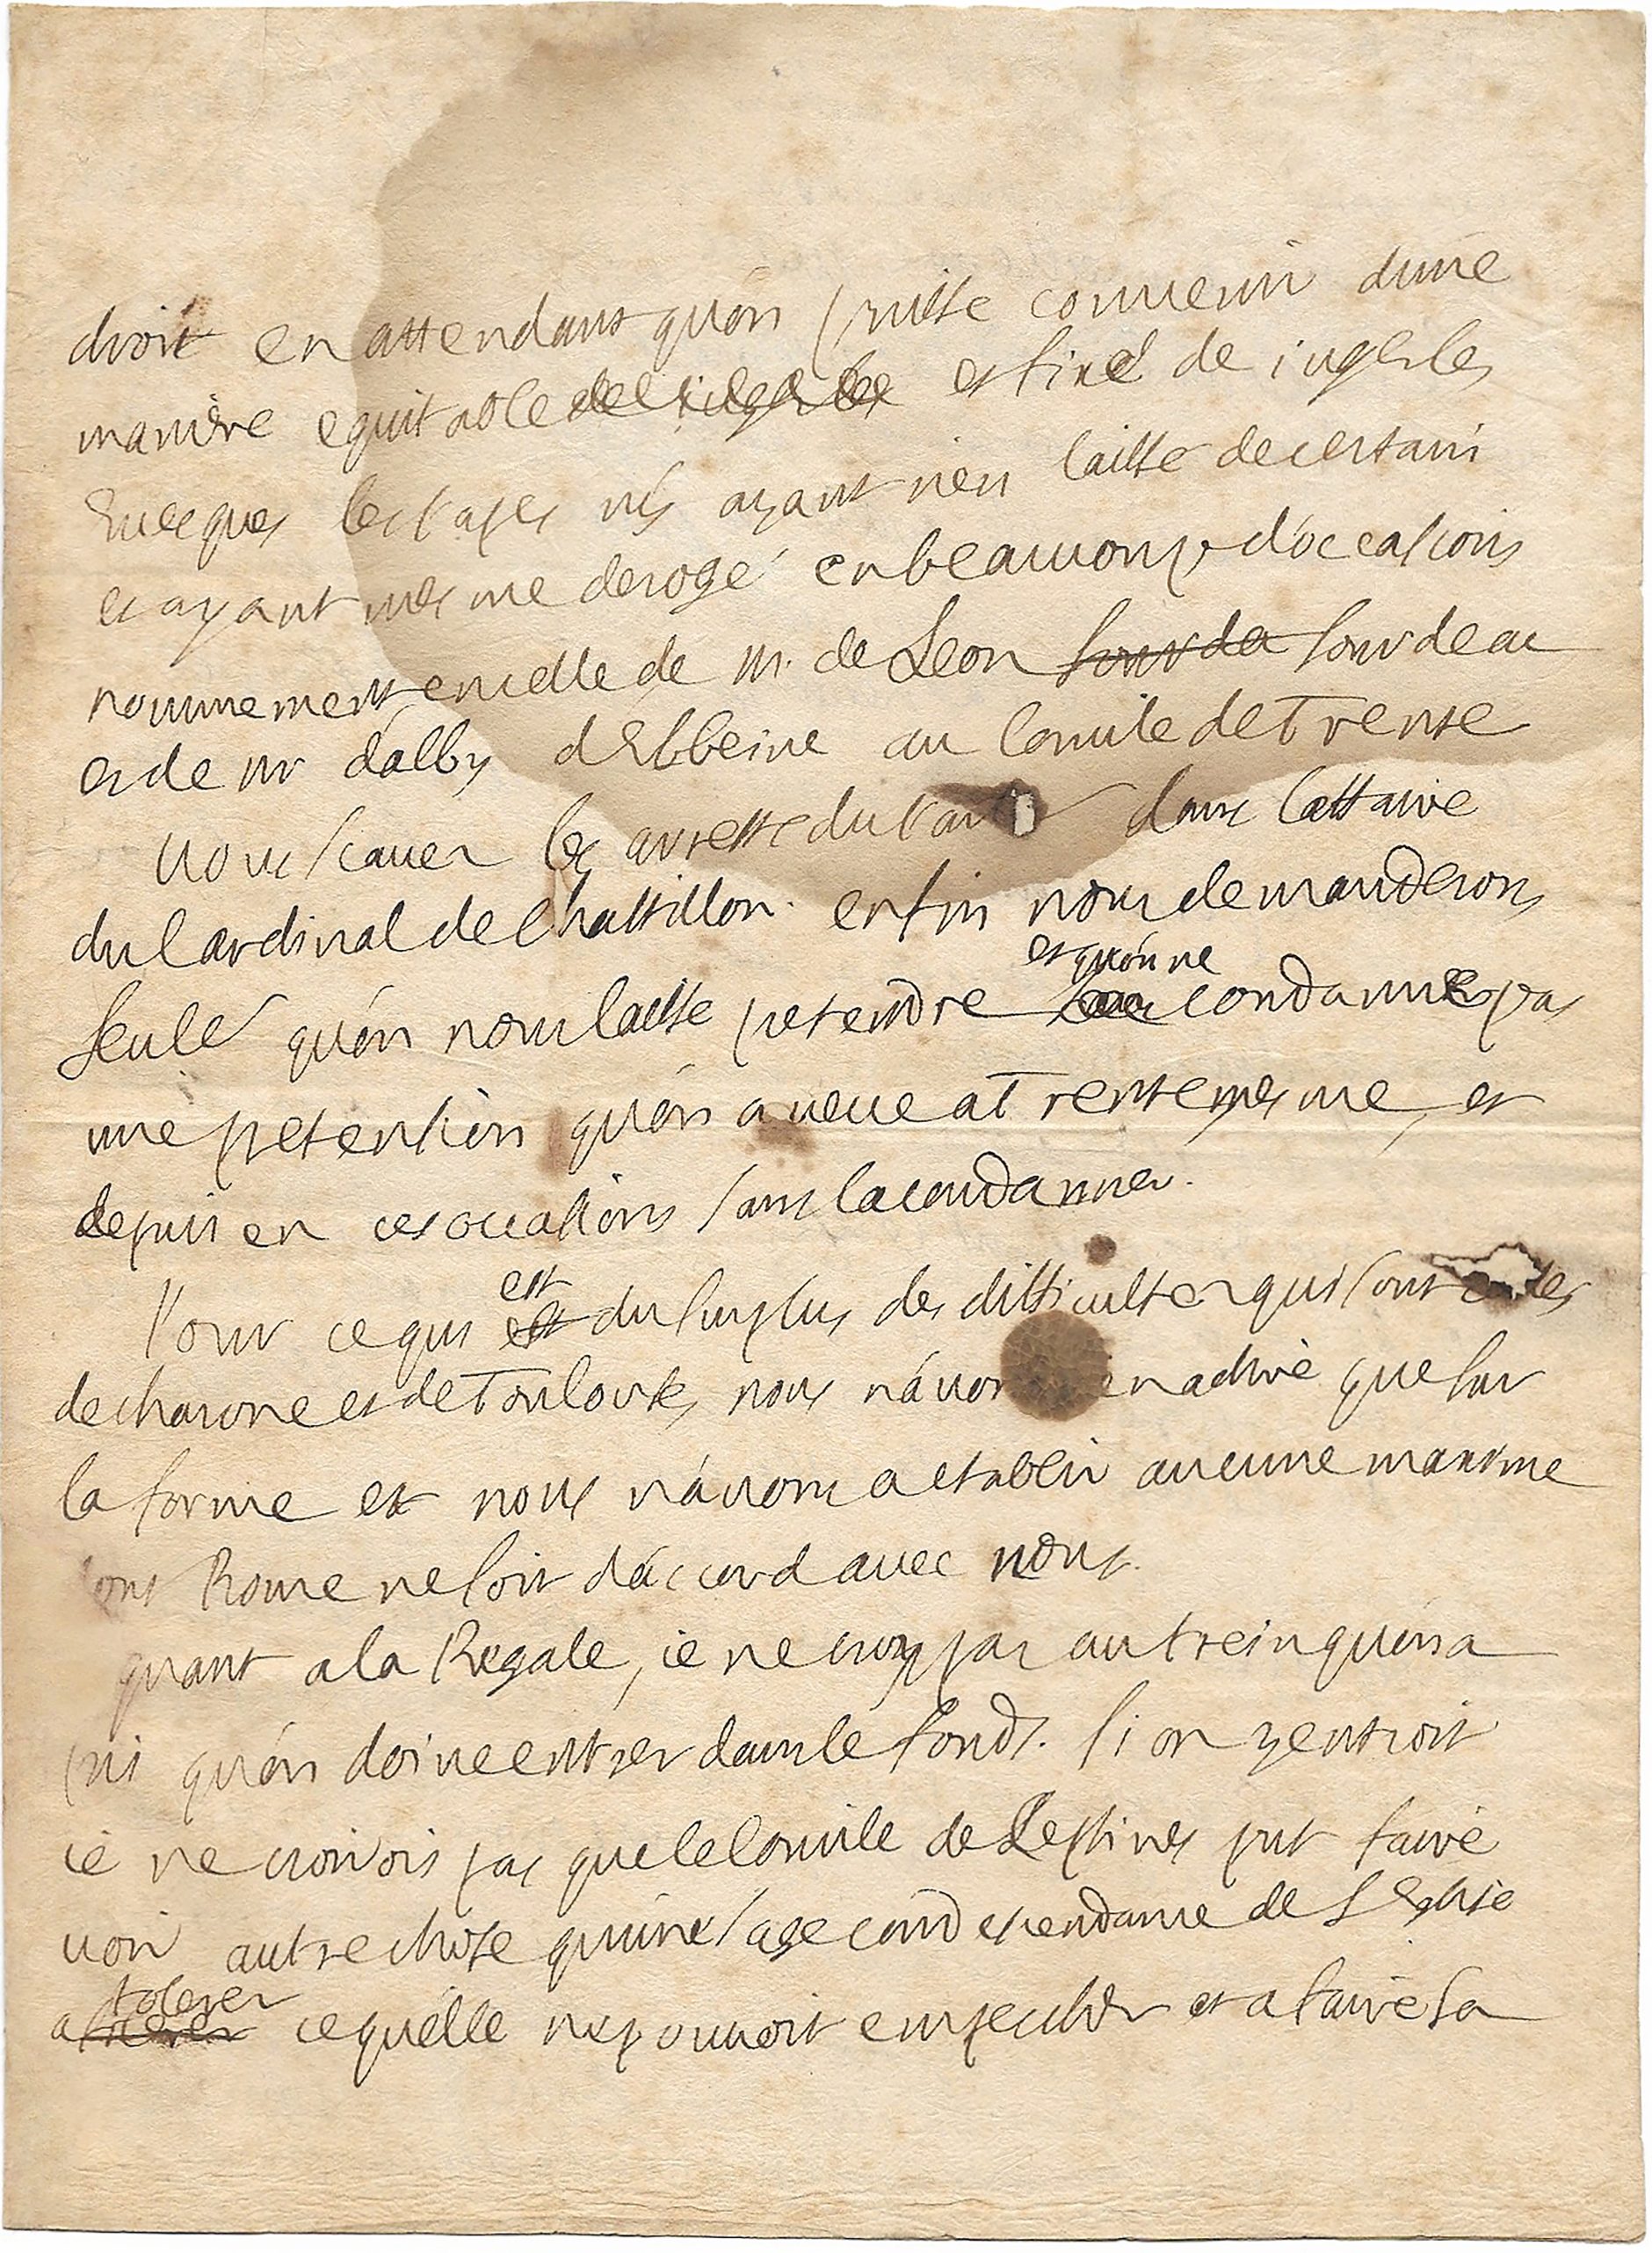 droit en attendant qu'on puisse convenir d'une
maniere equitable et fixe de iuger les
Euesques les Papes n'y ayant rien laissé de certain
et ayant mesme derogé en beaucoup d'occasions
nommement en celle de M. de Leon sourdeac
et de Mr d'alby d'Elbeine au Concile de Trente
Vous sçauez les arrests du Par dans l'affaire
du Cardinal de Chastillon. enfin nous demanderons
seule qu'on nous laisse pretendre et qu'on ne condamne pas
une pretention qu'on a veue a Trente mesme, et
depuis en ces occasions sans la condamner.
Pour ce qui est du surplus des difficultez qui sont
de charone et de Toulouse, nous n'auons decidé que sur
la forme et nous n'auons a etablir aucune maxime
dont Rome ne soit d'accord avec nous.
quant a la Regale, ie ne croy pas autre qu'on a
ni qu'on doiue entrer dans le fonds. si on y entroit
ie ne croirois pas que le Concile de Lestines put faire
voir autre chose qu'une sage condescendance de L'Eglise
a tolerer ce qu'elle ne pouuoit empescher et a faire sa